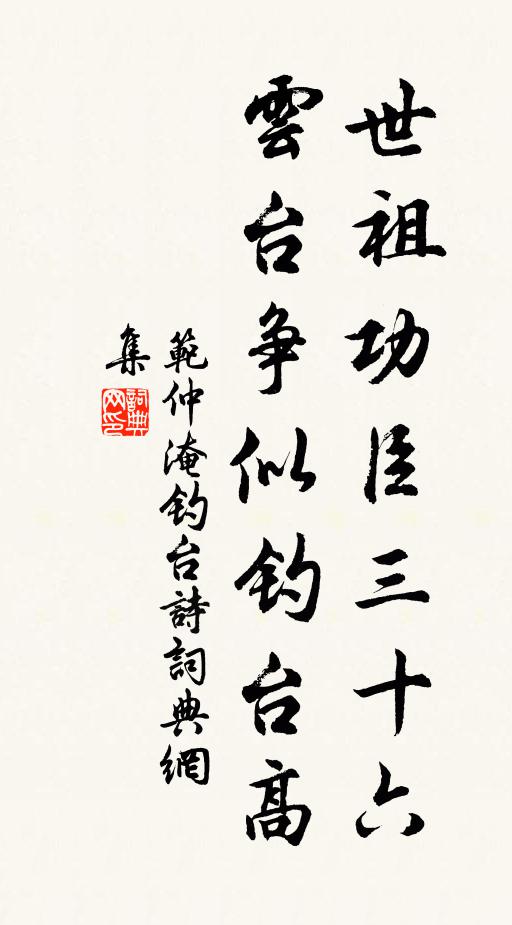 世祖功臣三十六
雲台争似钓台高
範仲淹钓台詩詞典網
集
詞典网印